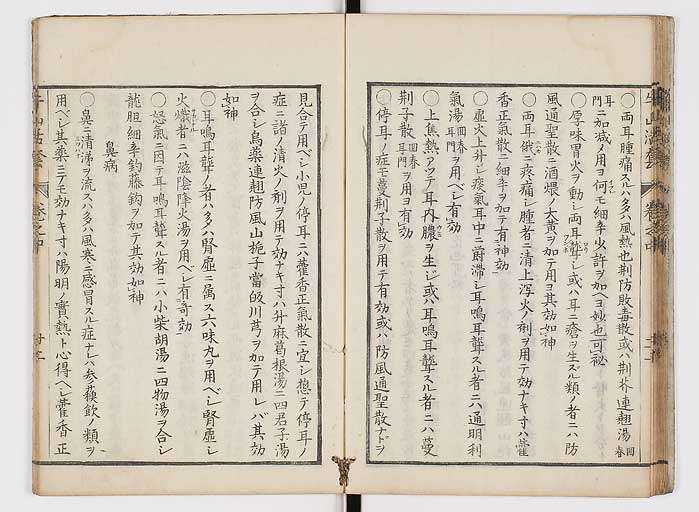 ○両耳腫痛スルハ多ハ風熱也荊防敗毒散或ハ荊芥連翹湯回春
耳門ニ加減ノ用ヨ何モ細辛少許ヲ加ヘヨ妙也可秘
○厚味胃火ヲ動シ両耳聾シ或ハ耳ニ瘡ヲ生ズル類ノ者ニハ防
風通聖散ニ酒煨ノ大黄ヲ加テ用ヨ其効如神
○両耳俄ニ疼痛シ腫者ニ清上瀉火ノ剤ヲ用テ効ナキ寸ハ藿
香正気散ニ細辛ヲ加テ有神効
○虚火上升シ痰氣耳中ニ欝滞シ耳鳴耳聾スル者ニハ通明利
氣湯回春耳門ヲ用ベシ有効
○上焦熱アツテ耳内膿ヲ生ジ或ハ耳鳴耳聾スル者ニハ蔓
荊子散回春耳門ヲ用ヨ有効
○停耳ノ症モ蔓荊子散ヲ用テ有効或ハ防風通聖散ナドヲ
見合テ用ベシ小児ノ停耳ニハ藿香正氣散ニ宜シ惣テ停耳ノ
症ニ諸ノ清火ノ剤ヲ用テ効ナキ寸ハ升麻葛根湯ニ四君子湯
ヲ合シ烏薬連翹防風山梔子當皈川芎ヲ加テ用レバ其効
如神
○耳鳴耳聾ノ者ハ多ハ腎虚ニ属ス六味丸ヲ用ベシ腎虚シ
火熾者ニハ滋陰降火湯ヲ用ベシ有奇効
○怒氣ニ因テ耳鳴耳聾スル者ニハ小柴胡湯ニ四物湯ヲ合シ
龍胆細辛釣藤鈎ヲ加テ其効如神
鼻病
○鼻ニ清涕ヲ流スハ多ハ風寒ニ感冒スル症ナレハ参蘓飲ノ類ヲ
用ベシ其薬ニテモ効ナキ寸ハ陽明ノ實熱ト心得ベシ藿香正